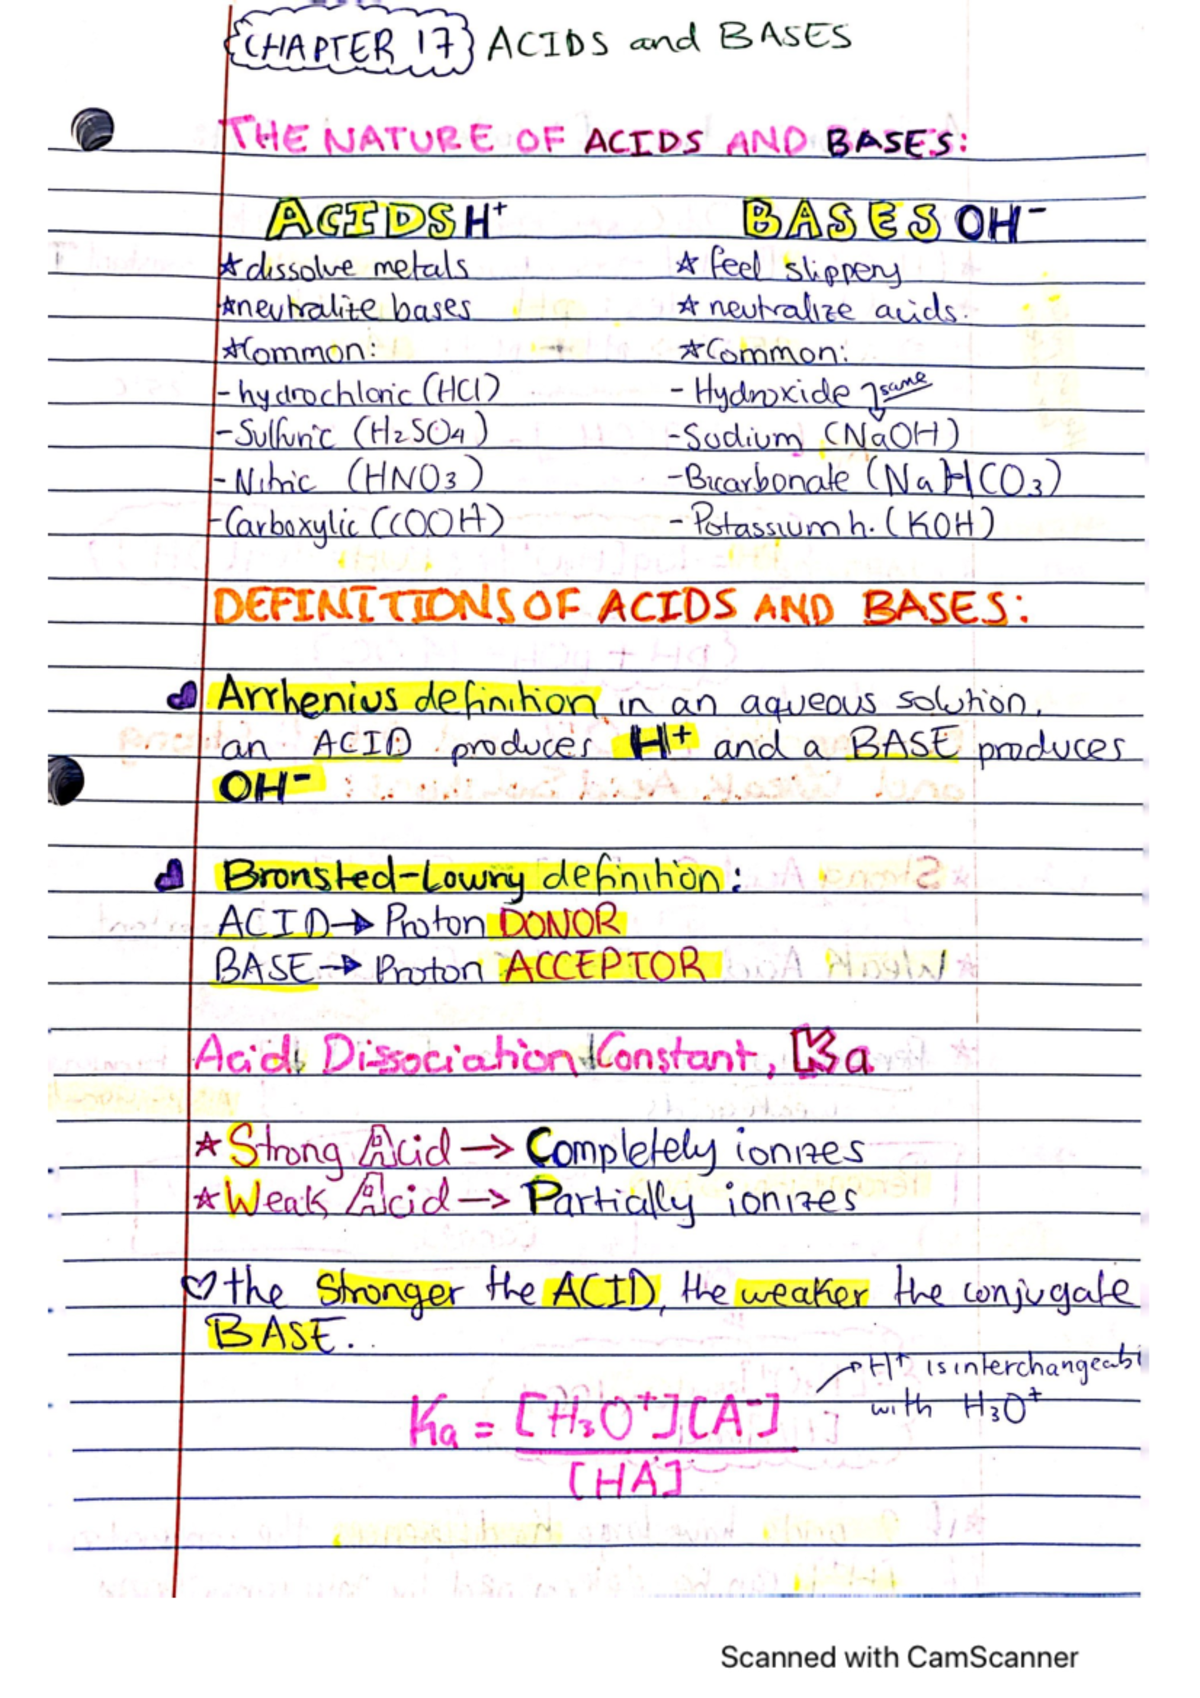 CHAPTER 17 ACIDS and BASES
THE NATURE OF ACIDS AND BASES:
ACIDS H⁺ BASES OH⁻
☆dissolve metals ☆ feel slippery
☆neutralize bases ☆ neutralize acids.
☆Common: ☆Common:
- hydrochloric (HCl) - Hydroxide same
- Sulfuric (H₂SO₄) - Sodium (NaOH)
- Nitric (HNO₃) - Bicarbonate (NaHCO₃)
- Carboxylic (COOH) - Potassium h. (KOH)
DEFINITIONS OF ACIDS AND BASES:
Arrhenius definition in an aqueous solution,
an ACID produces H⁺ and a BASE produces
OH⁻
Bronsted-Lowry definition:
ACID → Proton DONOR
BASE → Proton ACCEPTOR
Acid Dissociation Constant, Ka
☆ Strong Acid → Completely ionizes
☆ Weak Acid → Partially ionizes
♡ the Stronger the ACID, the weaker the conjugate
BASE.
→ H⁺ is interchangeabl
with H₃O⁺
Ka = [H₃O⁺][A⁻]
[HA]
Scanned with CamScanner